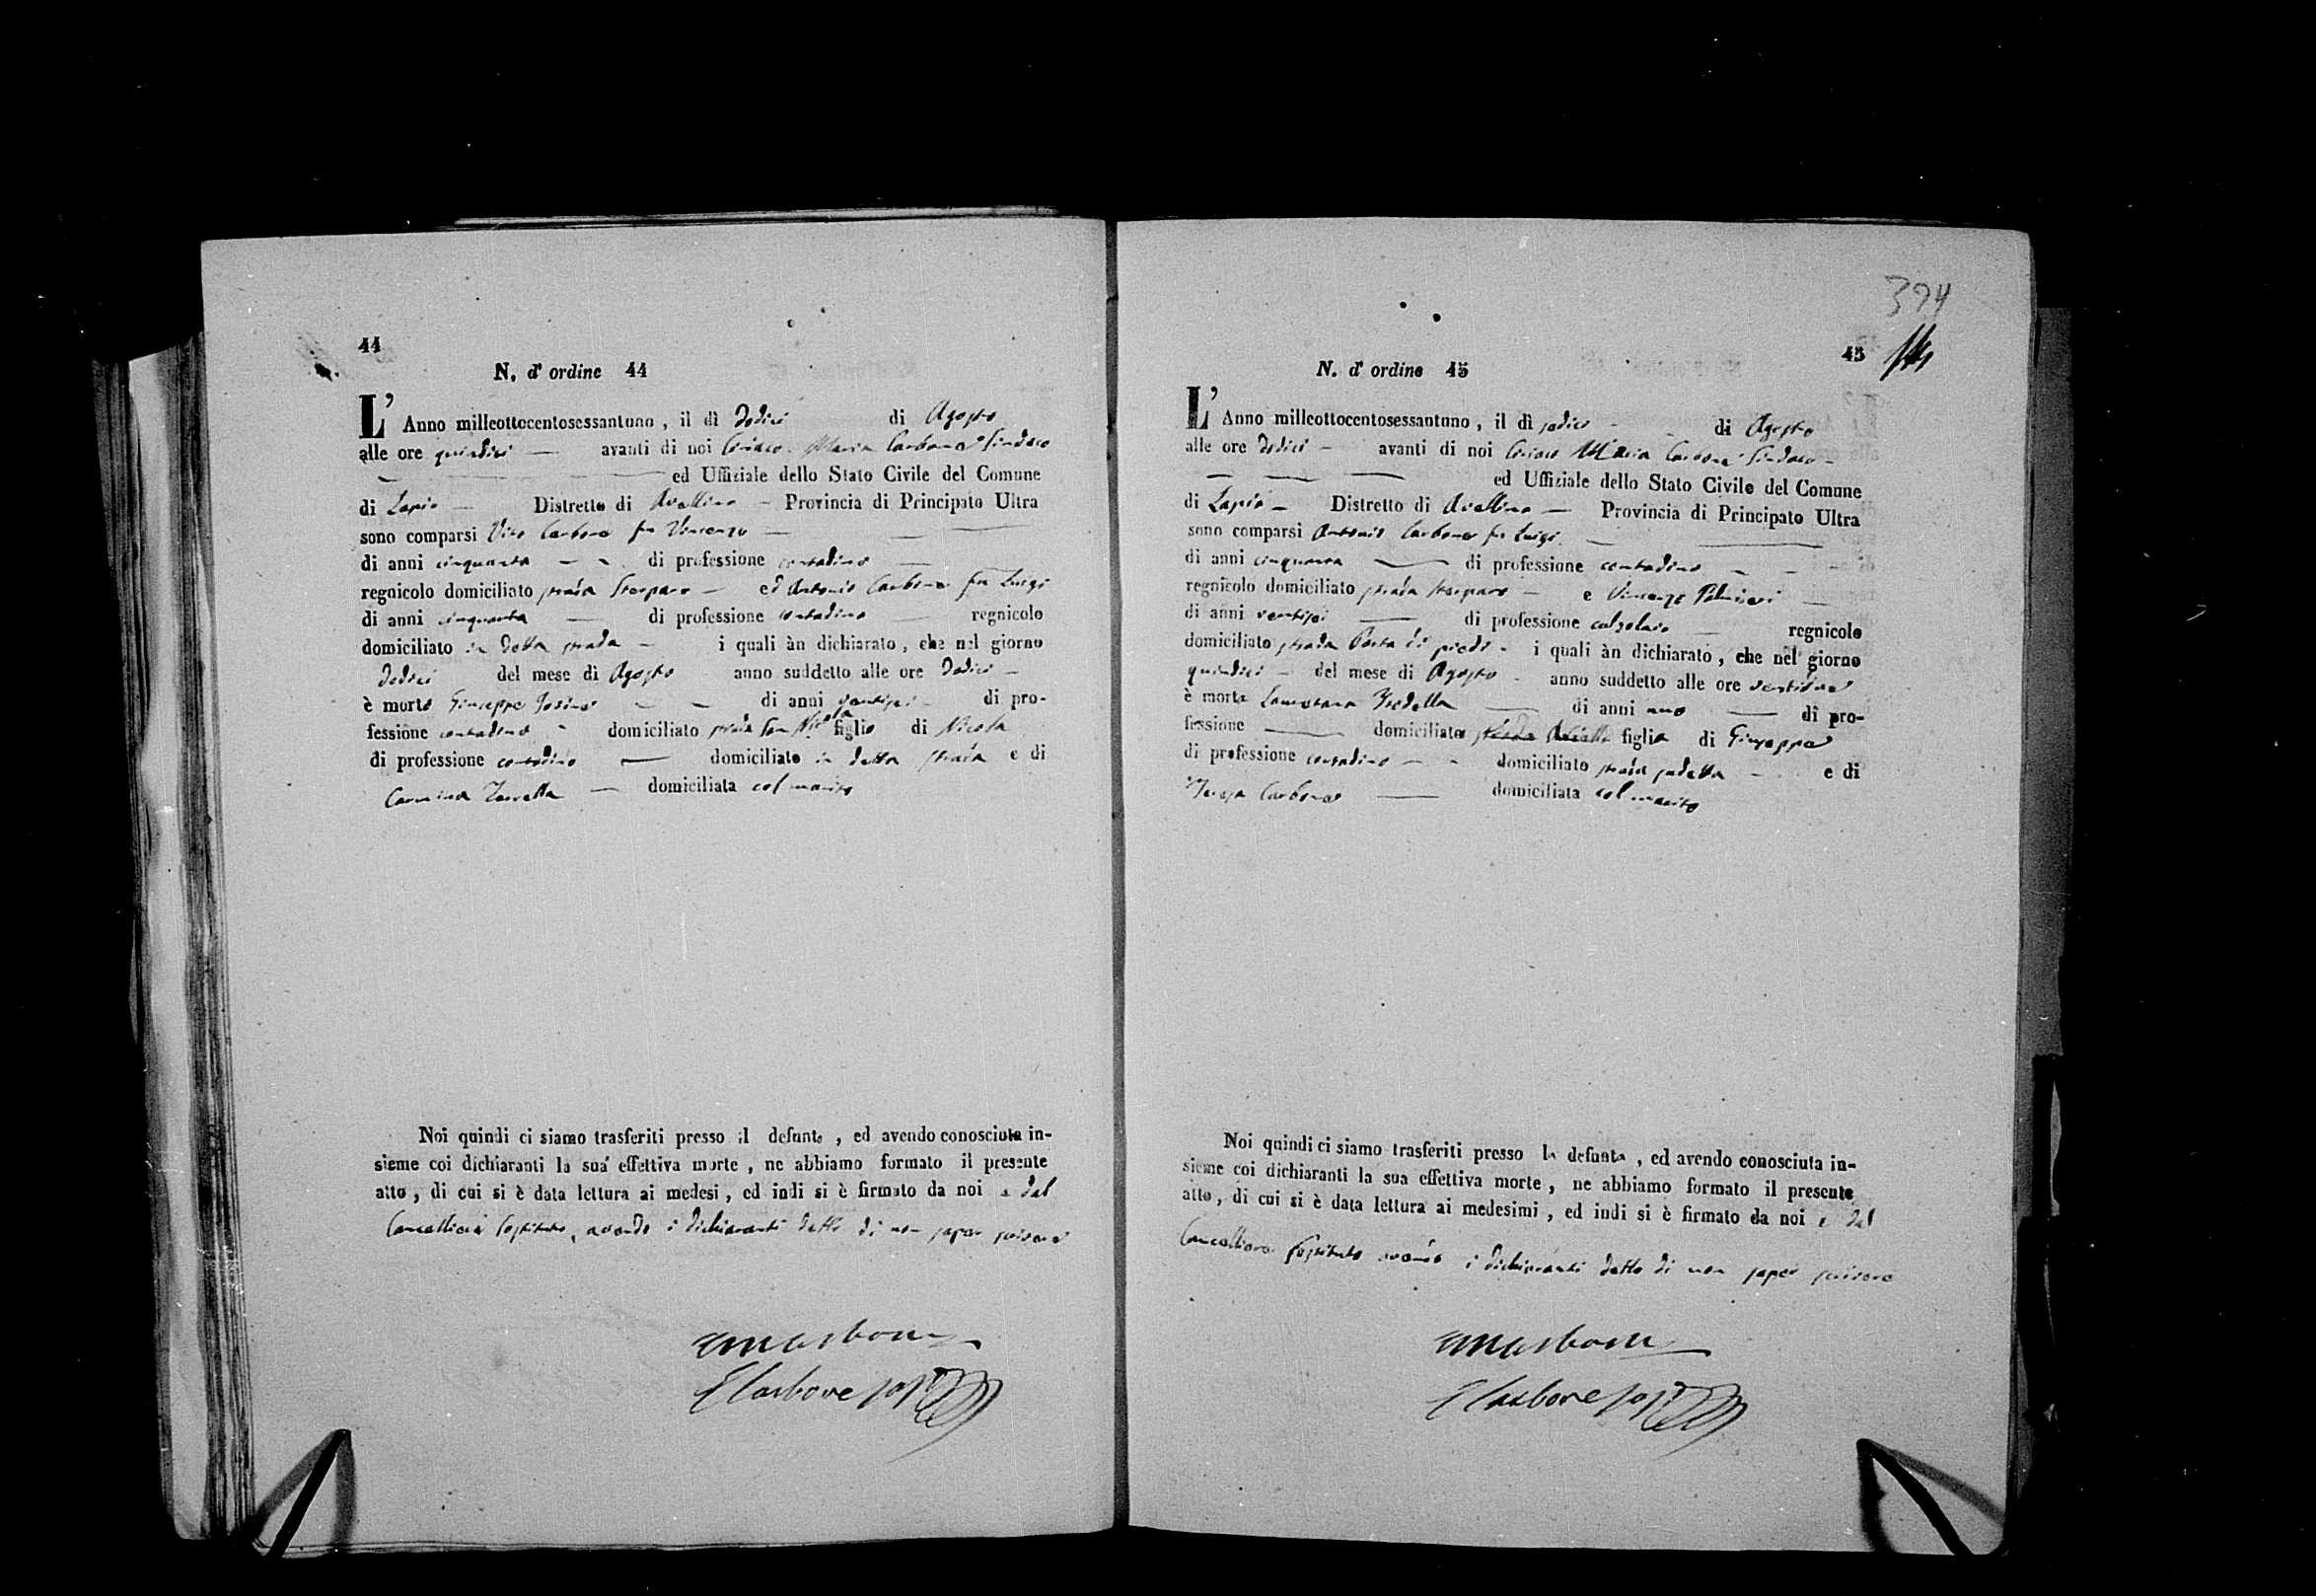 44
N. d' ordine 44
L' Anno milleottocentosessantuno, il dì dodici di Agosto
alle ore quindici — avanti di noi Ciriaco Maria Carbone Sindaco
ed Uffiziale dello Stato Civile del Comune
di Lapio — Distretto di Avellino — Provincia di Principato Ultra
sono comparsi Vito Carbone fu Vincenzo —
di anni cinquanta — di professione contadino —
regnicolo domiciliato strada — ed Antonio Carbone fu Luigi
di anni cinquanta — di professione contadino — regnicolo
domiciliato in detta strada — i quali àn dichiarato, che nel giorno
dodici del mese di Agosto anno suddetto alle ore dodici —
è morto Giuseppe — di anni ventisei — di pro-
fessione contadino — domiciliato strada San Nicola figlio di Nicola
di professione contadino — domiciliato in detta strada e di
Carmina — domiciliata col marito
Noi quindi ci siamo trasferiti presso il defunto, ed avendo conosciuta in-
sieme coi dichiaranti la sua effettiva morte, ne abbiamo formato il presente
atto, di cui si è data lettura ai medesi, ed indi si è firmato da noi e dal
Cancelliere sostituto, avendo i dichiaranti detto di non saper scrivere
Carbone
394
45
N. d' ordine 45
L' Anno milleottocentosessantuno, il dì sedici — di Agosto
alle ore dodici — avanti di noi Ciriaco Maria Carbone Sindaco —
ed Uffiziale dello Stato Civile del Comune
di Lapio — Distretto di Avellino — Provincia di Principato Ultra
sono comparsi Antonio Carbone fu Luigi —
di anni cinquanta — di professione contadino —
regnicolo domiciliato strada — e Vincenzo Palmieri —
di anni ventisei — di professione calzolaio — regnicolo
domiciliato strada Porta di piedi — i quali àn dichiarato, che nel giorno
quindici — del mese di Agosto — anno suddetto alle ore ventidue
è morta — di anni uno — di pro-
fessione — domiciliata strada figlia di Giuseppe
di professione contadino — domiciliato strada sudetta — e di
Teresa Carbone — domiciliata col marito
Noi quindi ci siamo trasferiti presso la defunta, ed avendo conosciuta in-
sieme coi dichiaranti la sua effettiva morte, ne abbiamo formato il presente
atto, di cui si è data lettura ai medesimi, ed indi si è firmato da noi e dal
Cancelliere sostituto avendo i dichiaranti detto di non saper scrivere
Carbone